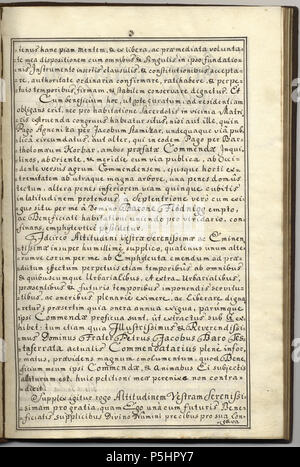 3
tenus hanc piam mentem, & ex libera, ac præmeditata volunta-
te mea dispositionem cum omnibus & singulis in ipso fundatio-
nis Instrumento insertis clausulis & constitutionibus accepta-
re, authoritate ordinaria confirmare, ratihabere, & perpe-
tuis temporibus firmam, & stabilem conservare dignetur. Et
Cum beneficium hoc, utpote curatum, ad residentiam
obligans erit, nec pro habitatione Sacerdotis in vicinia Matr-
cis extruenda congruus habeatur situs, nisi aut ille, qui in
Pago per Jacobum undequaque via pub-
lica circumdatus, aut alter, qui in eodem Pago per Bar-
tholomæum Korbar, ambos præfatæ Commendæ Inqui-
linos, ab oriente, & meridie cum via publica, ab Occi-
dente versus agrum Commendæ, ejusque horti ex-
tremitatem ab utraque magna arbore, una penes domus
tectum, altera penes inferiorem viam quinque cubitis
in latitudinem protensus, à Septentrione vero cum
quo situ per me à Domino Barone empto,
ac Beneficiati habitationi
finans, emphyteutice
Addirco Altitudini vestræ Serenissimæ ac Eminen-
tissimæ insuper humillime supplico, quatenus unum alte-
rumve eorum per me ab Emphyteuta emendum ad præ-
dictum effectum perpetuis etiam temporibus ab omnibus
& quibuscunque Urbarialibus, & extra Urbarialibus,
præsentibus & futuris temporibus imponendis servitu-
tibus, ac oneribus plenarie eximere, ac Liberare digna-
retur, præsertim quia onera annua exigua, parumque
ipsi Commendæ proficua sunt, ut extractus sub
hibet; tum etiam quia Illustrissimus & Reverendissi-
mus Dominus Frater Petrus Jacobus Baro Tes-
taferrata actualis Commendatarius plene infor-
matus, prævidens magnum emolumentum, quod Bene-
ficium meum ipsi Commendæ, & animabus Ei subjectis
allaturum est, huic petitioni meæ perenixæ non contra-
dicit.
Supplex igitur rogo Altitudinem Vestram Serenissi-
simam pro gratia, quam Ego una cum futuris Bene-
ficiatis supplicibus Divino Numini precibus pro sua con-